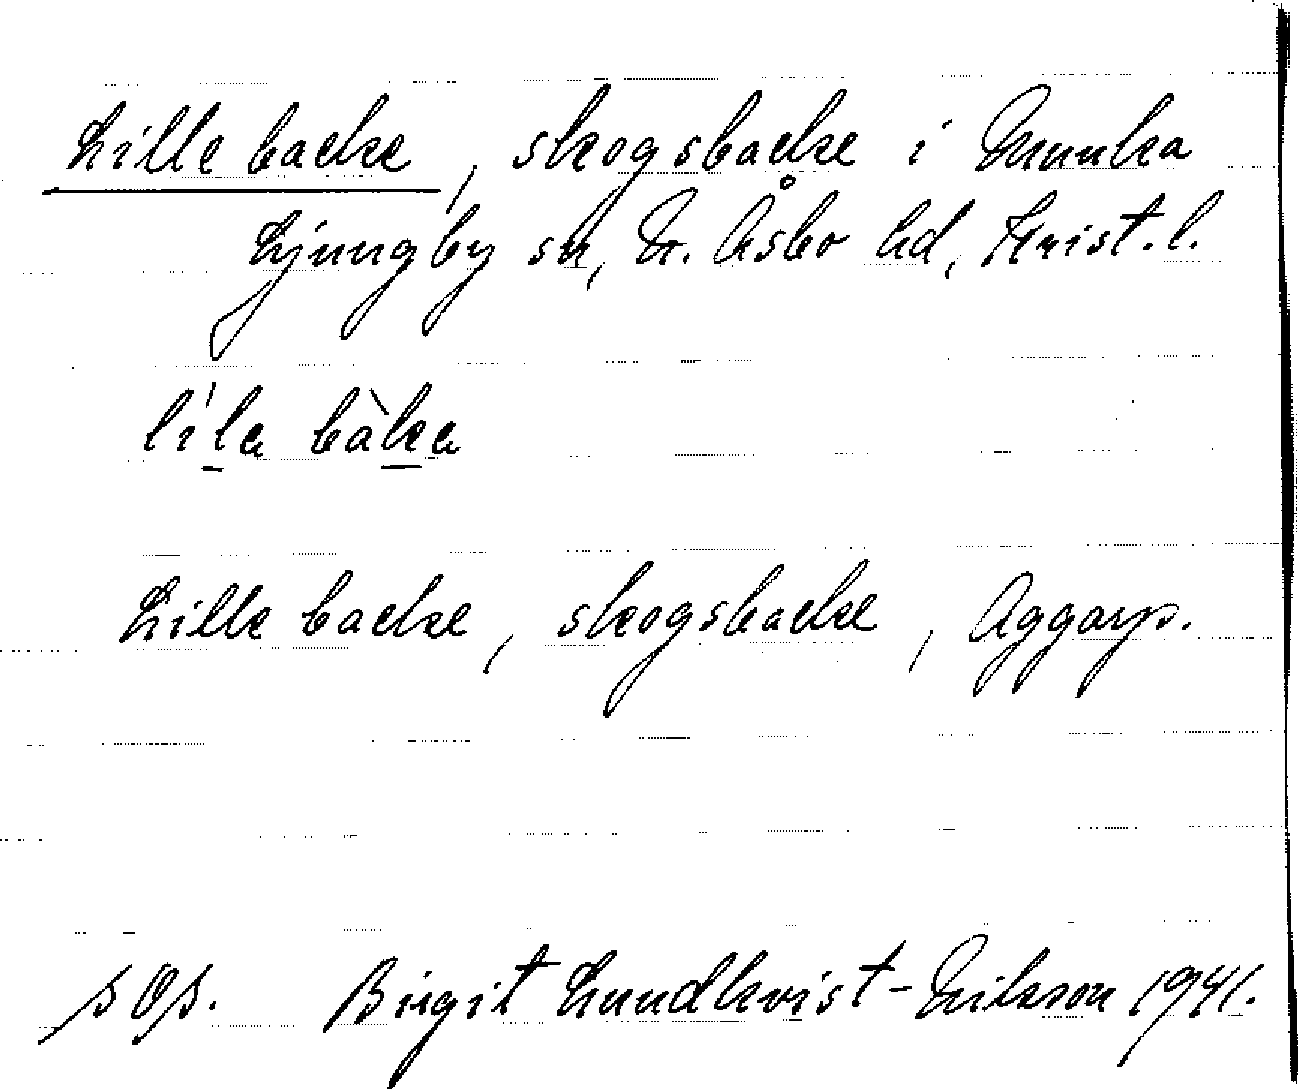 Lille backe, skogsbacke i Munka
Ljungby sn, N. Åsbo hd, Krist. l.
líla bàka
Lille backe, skogsbacke, Aggarp.
Birgit Lundkvist-Nilsson 1941.